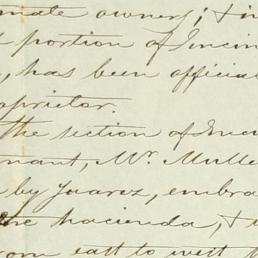 mate owners; & in
portion of Encin
, has been official
oprietor.
the section of Encin
nant, Mr. Mulle
by Juarez, embra
the hacienda, &
from east to west